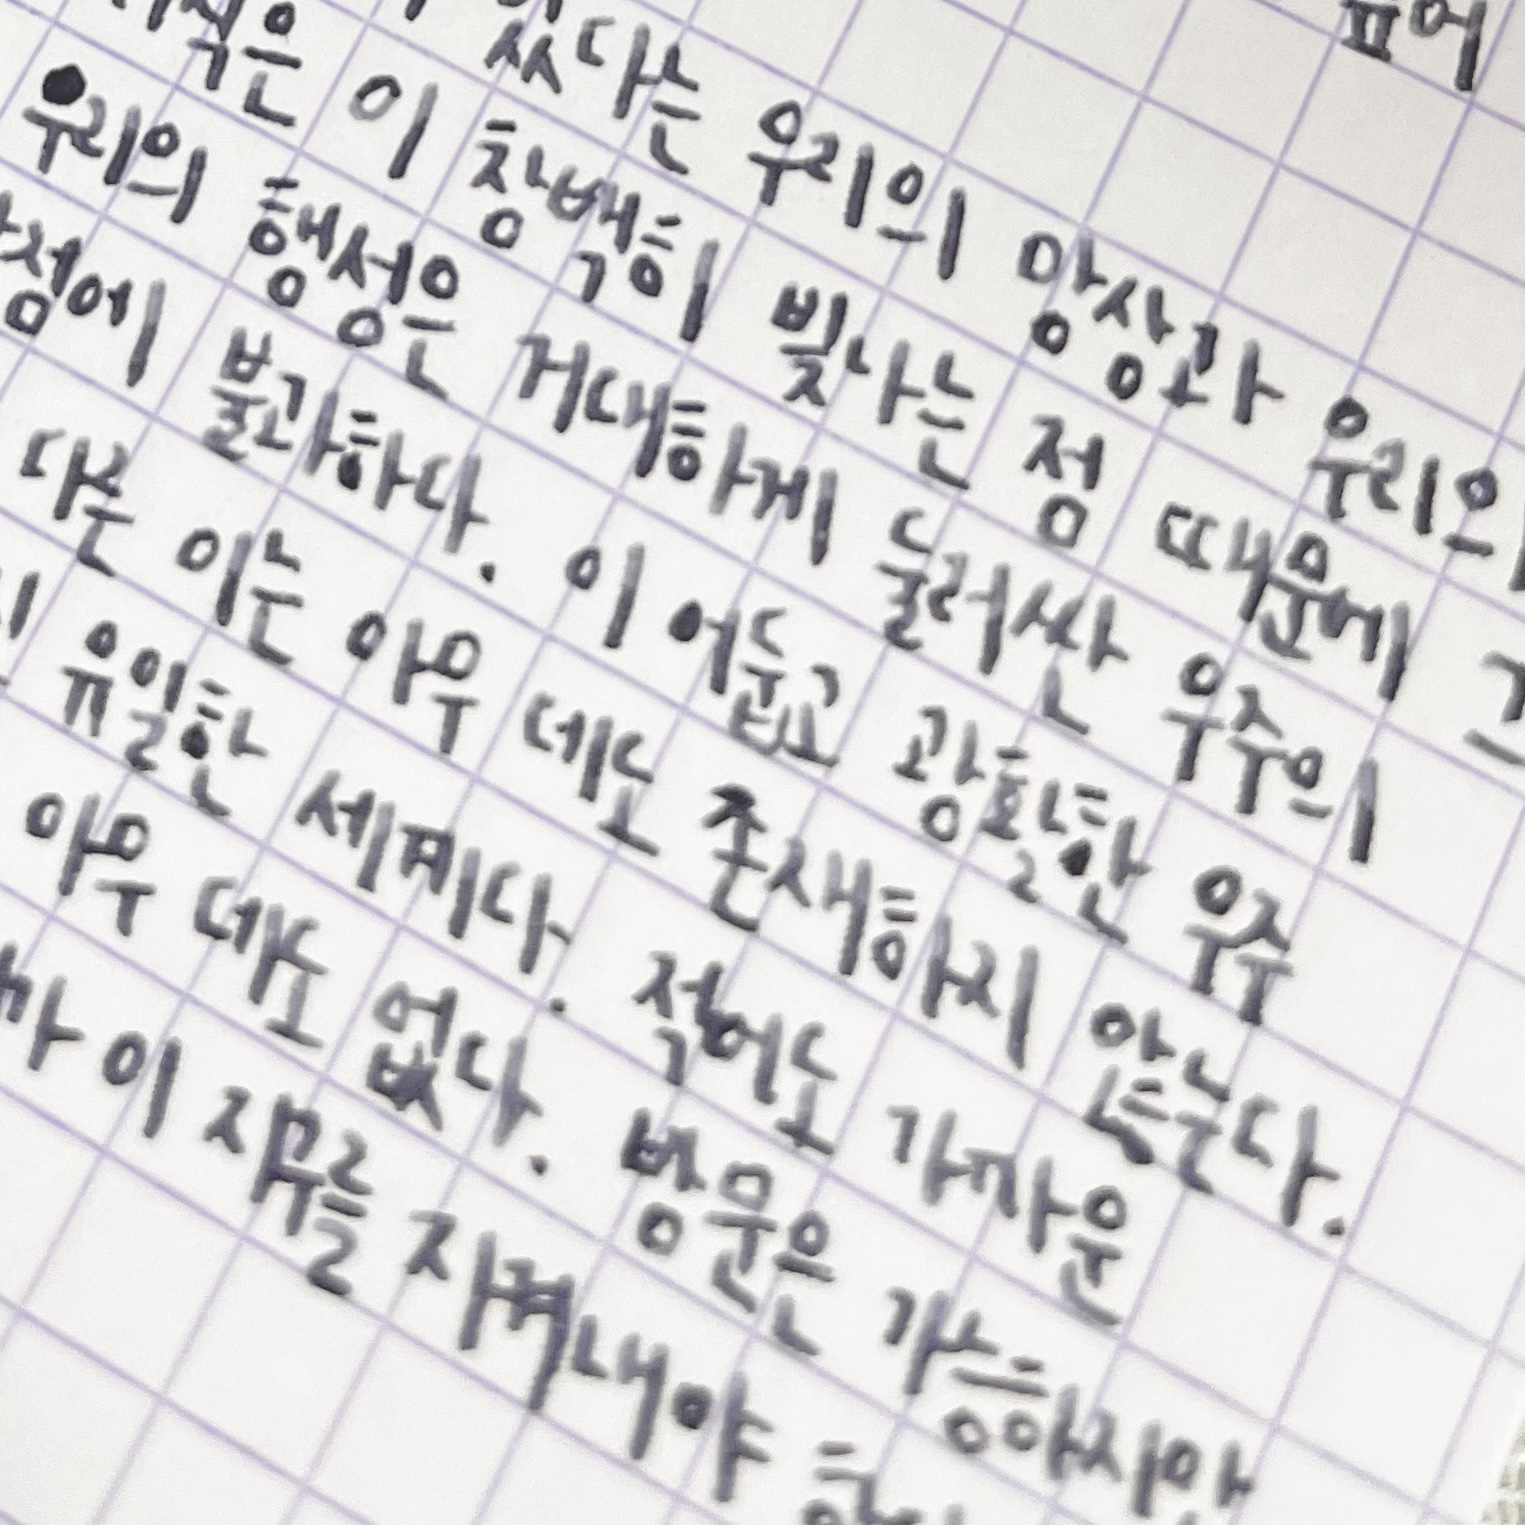 있다는 우리의 망상과 우리의
이 창백히 빛나는 점 때문에
우리의 행성은 거대하게 둘러싼 우주의
점에 불과하다. 이 어둡고 광활한 우주
다른 이는 아무 데도 존재하지 않는다.
유일한 세계다. 적어도 가까운
아무 데도 없다. 방문은 가능하지만
이 지구를 지켜내야